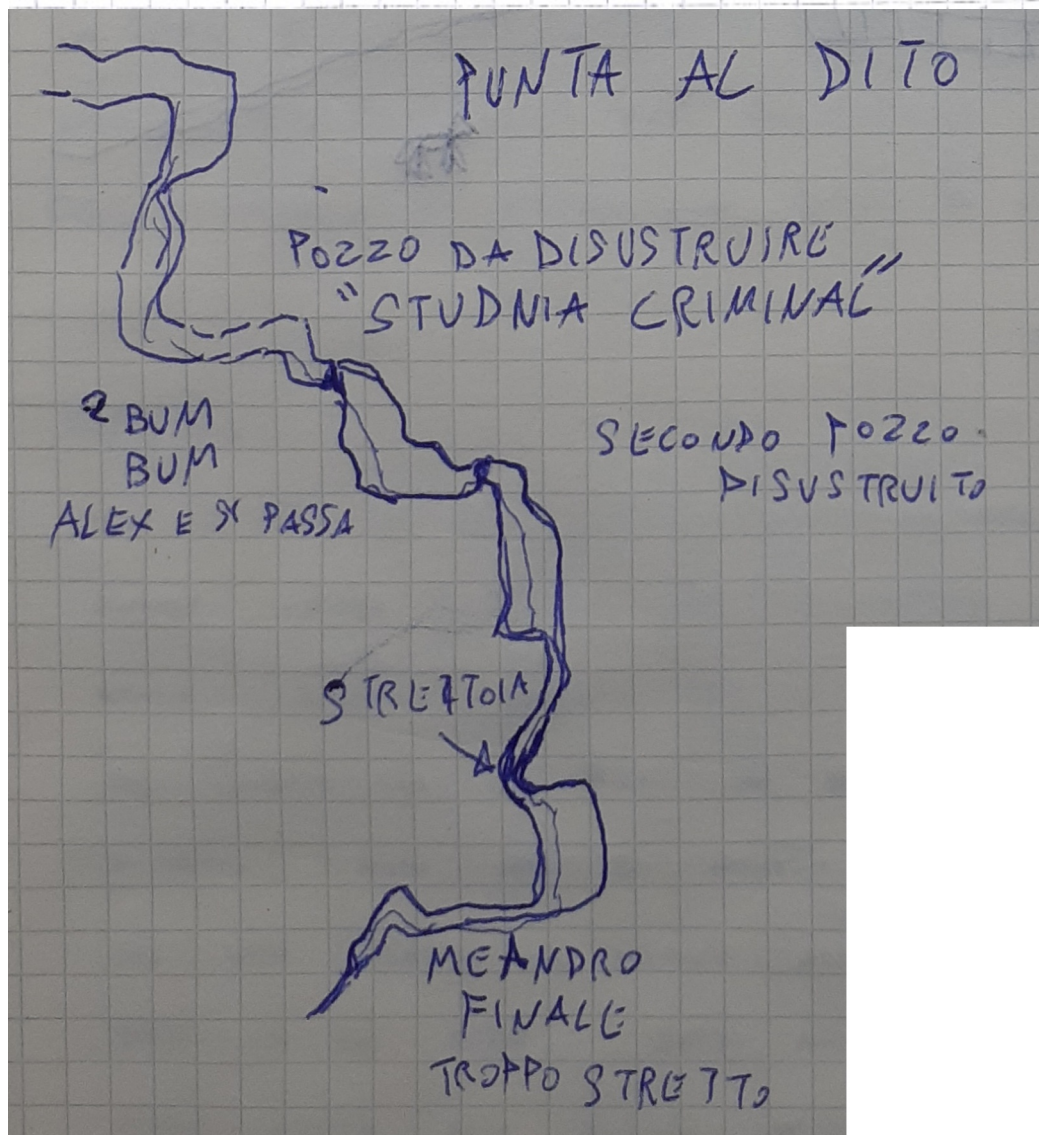 PUNTA AL DITO
POZZO DA DISUSTRUIRE
"STUDNIA CRIMINAL"
2 BUM
BUM
ALEX E SI PASSA
SECONDO POZZO
DISUSTRUITO
STRETTOIA
MEANDRO
FINALE
TROPPO STRETTO